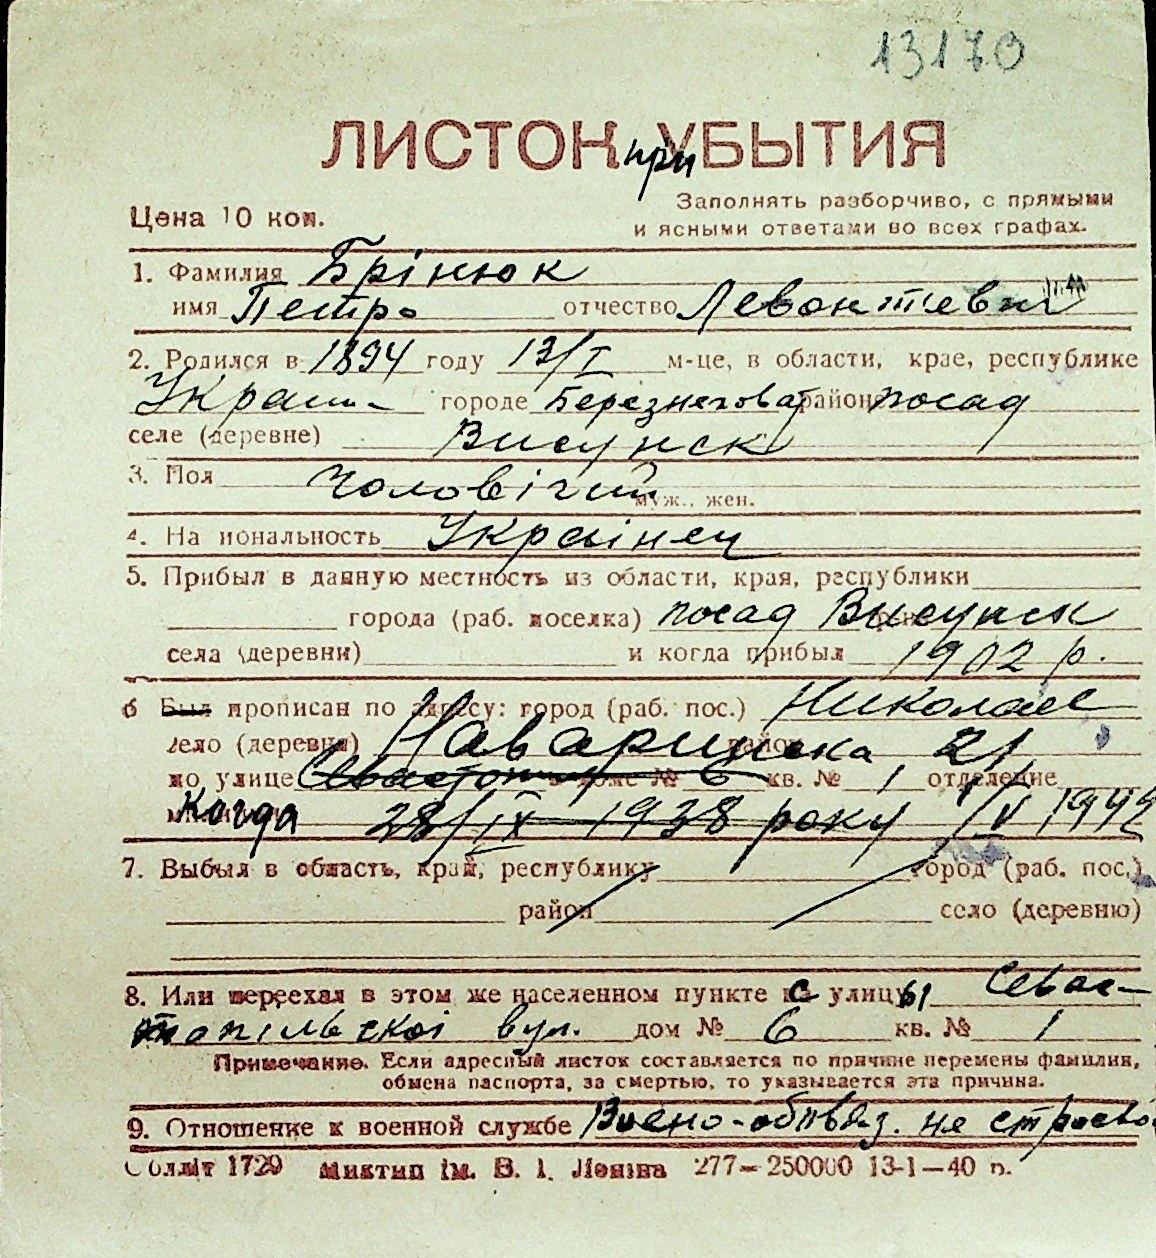 13170
ЛИСТОК при УБЫТИЯ
Цена 10 коп.
Заполнять разборчиво, с прямыми
и ясными ответами во всех графах.
1. Фамилия Брінюк
имя Петро отчество
2. Родился в 1894 году 13/I м-це, в области, крае, республике
городе районе посад
селе (деревне) Висунск
3. Пол Чоловічий муж., жен.
4. На иональность Украінец
5. Прибыл в данную местность из области, края, республики
города (раб. поселка) посад Висунск
села (деревни) и когда прибыл 1902 р.
6 Был прописан по адресу: город (раб. пос.) Николаев
село (деревня) Наваринска район 21
по улице доме № 6 кв. № 1 отделение
Когда 28/IX 1938 року 1/V 1942
7. Выбыл в область, край, республику город (раб. пос.)
район село (деревню)
8. Или переехал в этом же населенном пункте с улицы Севас-
топільскоі вул. дом № 6 кв. № 1
Примечание. Если адресный листок составляется по причине перемены фамилии,
обмена паспорта, за смертью, то указывается эта причина.
9. Отношение к военной службе
Обліт 1729 Миктип ім. В. І. Леніна 277—250000 13-1—40 р.